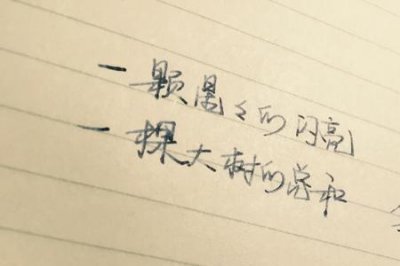 一颗星々的闪亮
一棵大树的总和